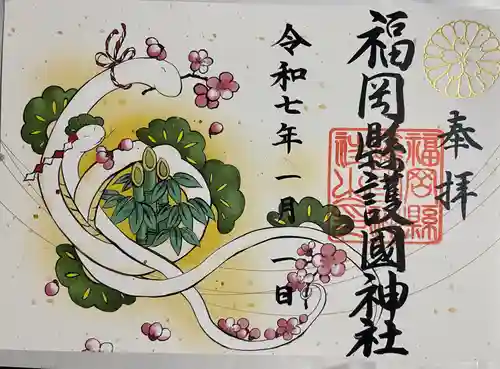 奉拝
福岡縣護國神社
福岡縣
令和七年一月一日